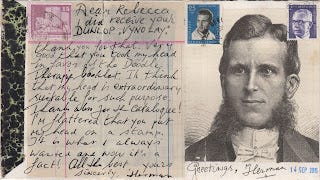 Dear Rebecca
I did receive your
DUNLOP, VYNOLAY.
Thank you for that. Very
good that you took my head
in favor of the Doodle
Therapy booklet. I think
that my head is extraordinary
suitable for such purpose.
Thank you for St Catalogue!
I'm flattered that you put
my head on a stamp.
It is what I always
wanted and now it's a
fact! All the best yours
sincerely, Herman
15
25
Greetings, Herman
14 SEP 2015